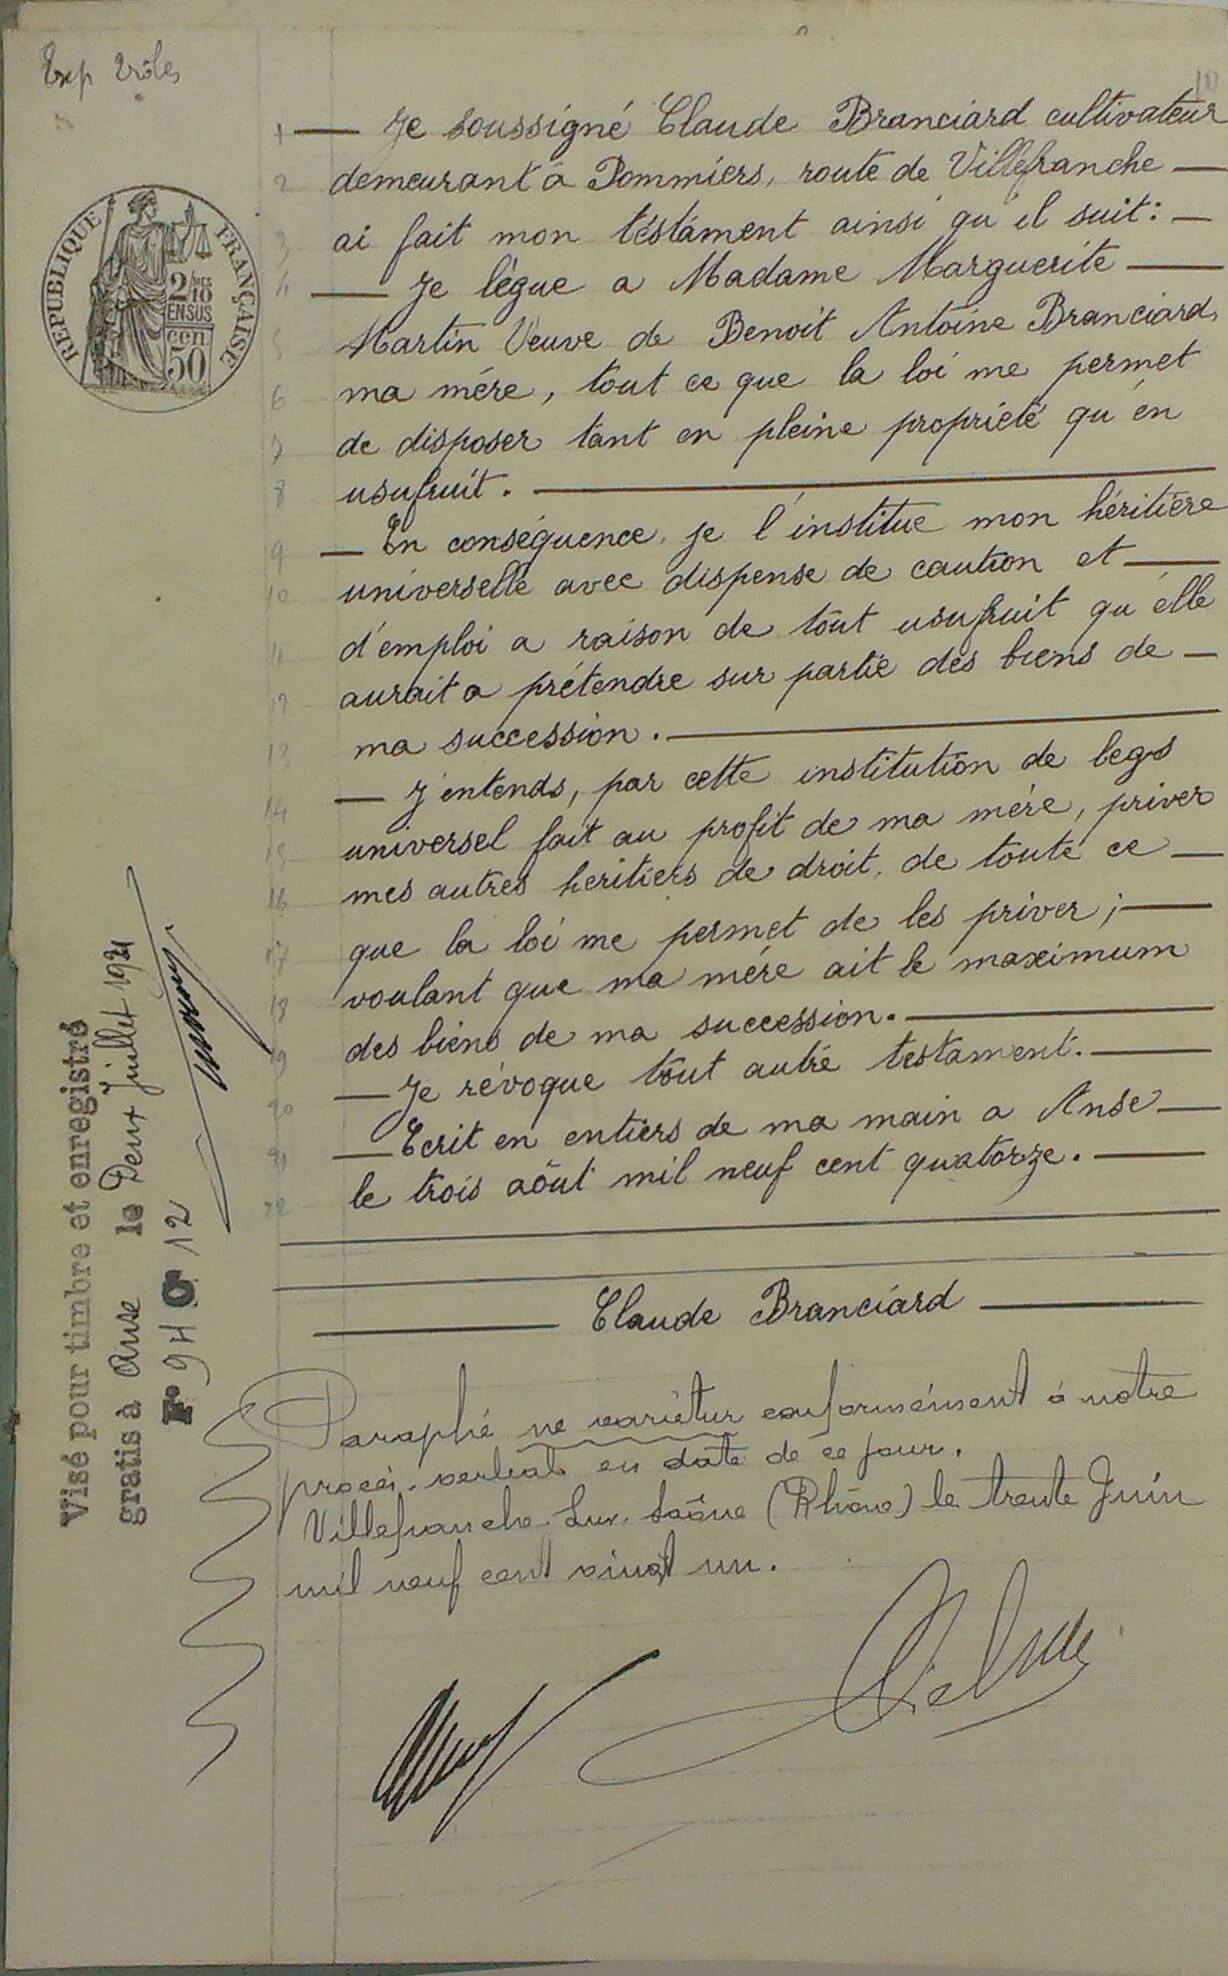 Exp Rôles
RÉPUBLIQUE FRANÇAISE
2/MES
10
EN SUS
cen
50
1 Je soussigné Claude Branciard cultivateur
2 demeurant à Pommiers, route de Villefranche
3 ai fait mon testament ainsi qu'il suit :
4 Je lègue a Madame Marguerite
5 Martin Veuve de Benoit Antoine Branciard,
6 ma mére, tout ce que la loi me permet
7 de disposer tant en pleine propriété qu'en
8 usufruit.
9 En conséquence, je l'institue mon héritière
10 universelle avec dispense de caution et
11 d'emploi a raison de tout usufruit qu'elle
12 aurait a prétendre sur partie des biens de
13 ma succession.
14 J'entends, par cette institution de legs
15 universel fait au profit de ma mére, priver
16 mes autres heritiers de droit, de toute ce
17 que la loi me permet de les priver ;
18 voulant que ma mére ait le maximum
19 des biens de ma succession.
20 Je révoque tout autre testament.
21 Ecrit en entiers de ma main a Anse
22 le trois aôut mil neuf cent quatorze.
Claude Branciard
Paraphé ne varietur conformément à notre
procès-verbal en date de ce jour.
Villefranche-sur-Saône (Rhône) le trente Juin
mil neuf cent vingt un.
Visé pour timbre et enregistré
gratis à Anse le Deux Juillet 1921
F° 94 C° 12